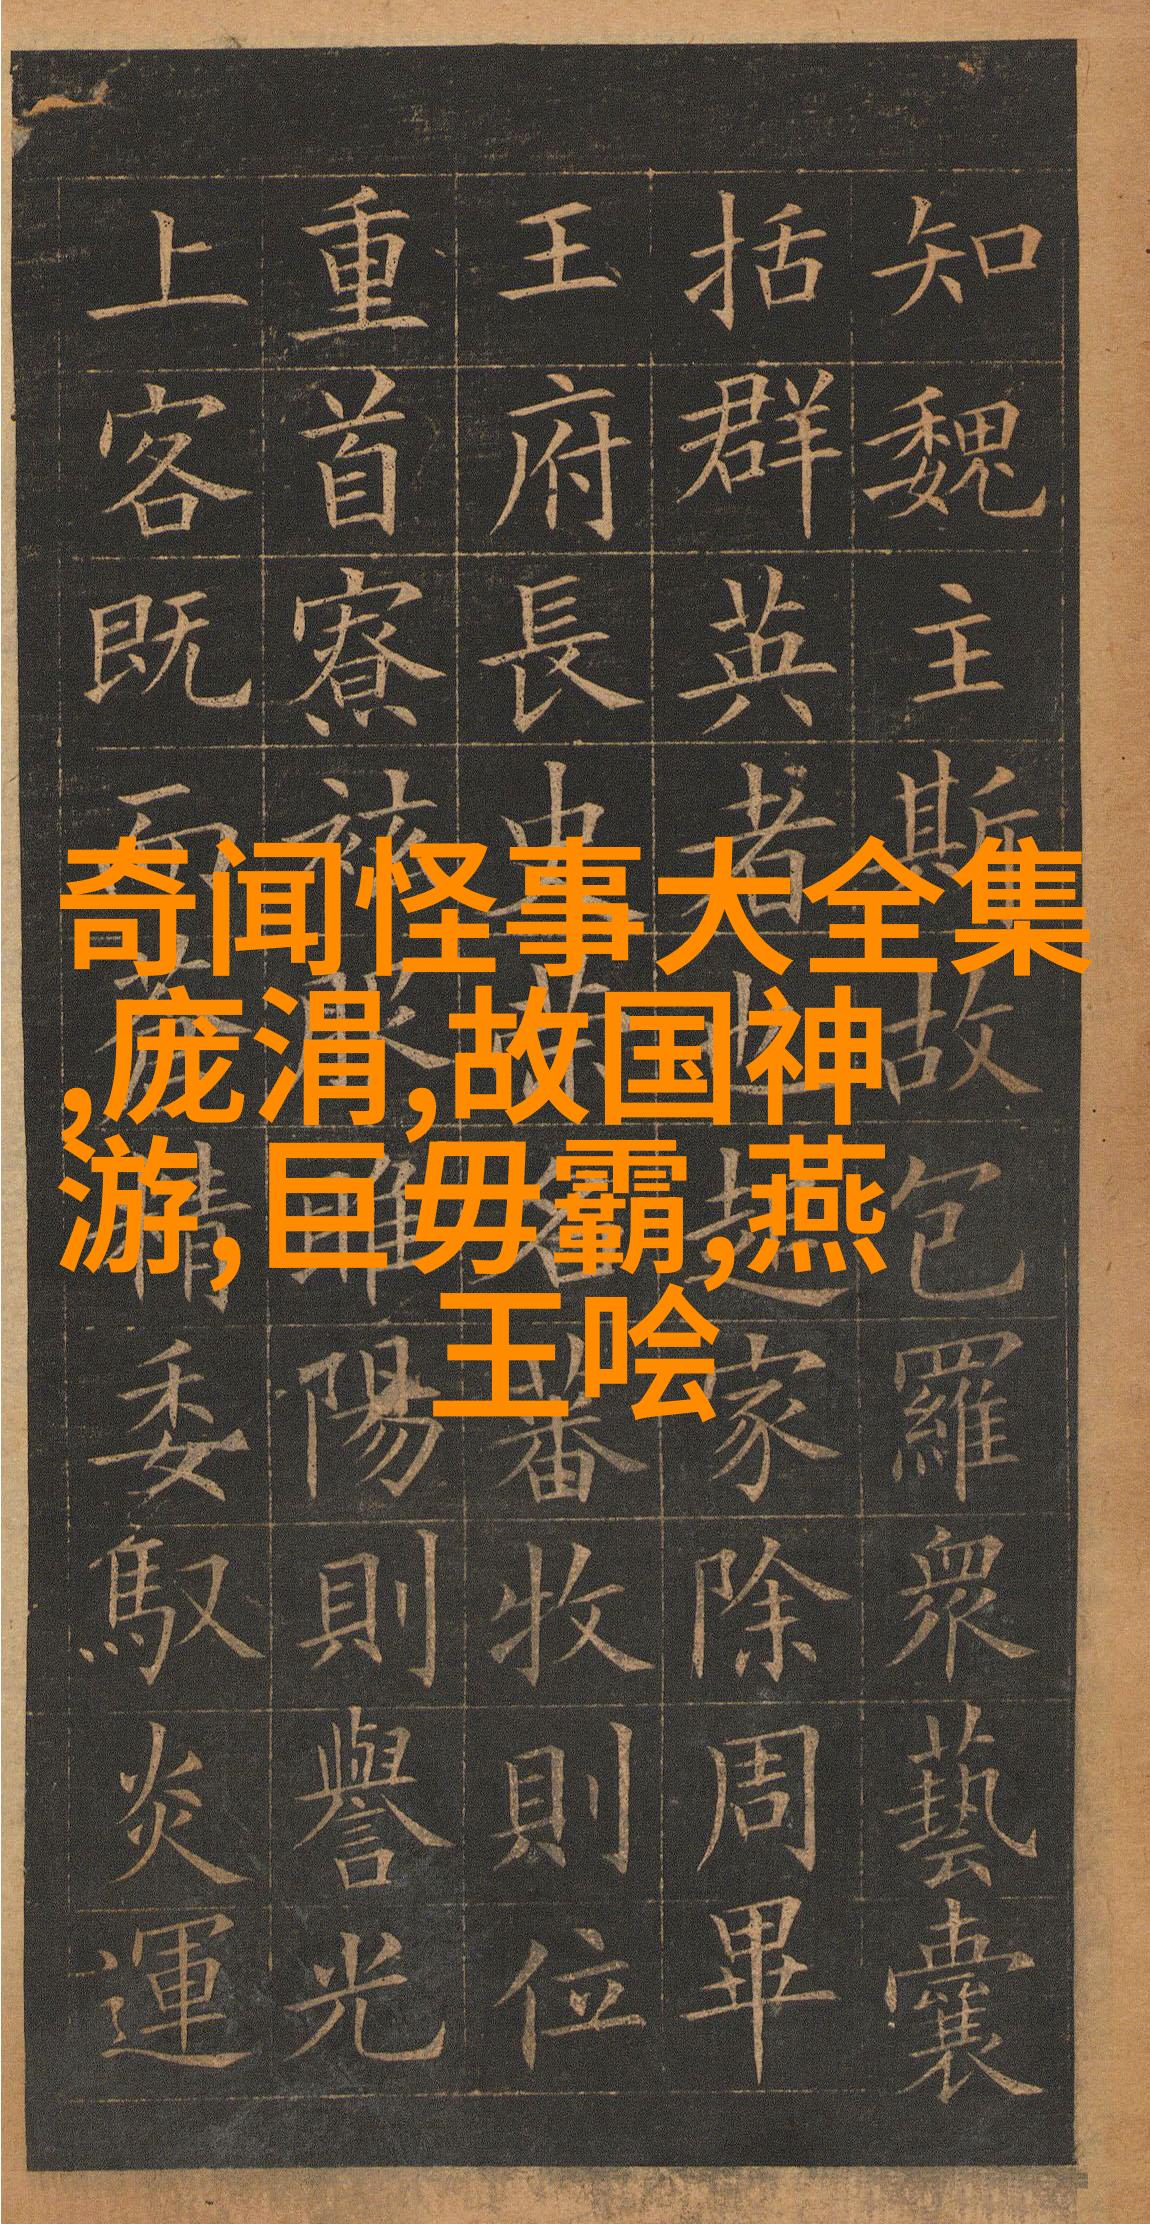 知魏主斯故包羅衆藝囊
括群英者也起家除周畢
王府長史榮名蕃牧則位
重首寮袪服睢陽則譽光
上客既而蒼精委馭炎運
奇闻怪事大全集
,庞涓,故国神
游,巨毋霸,燕
王哙